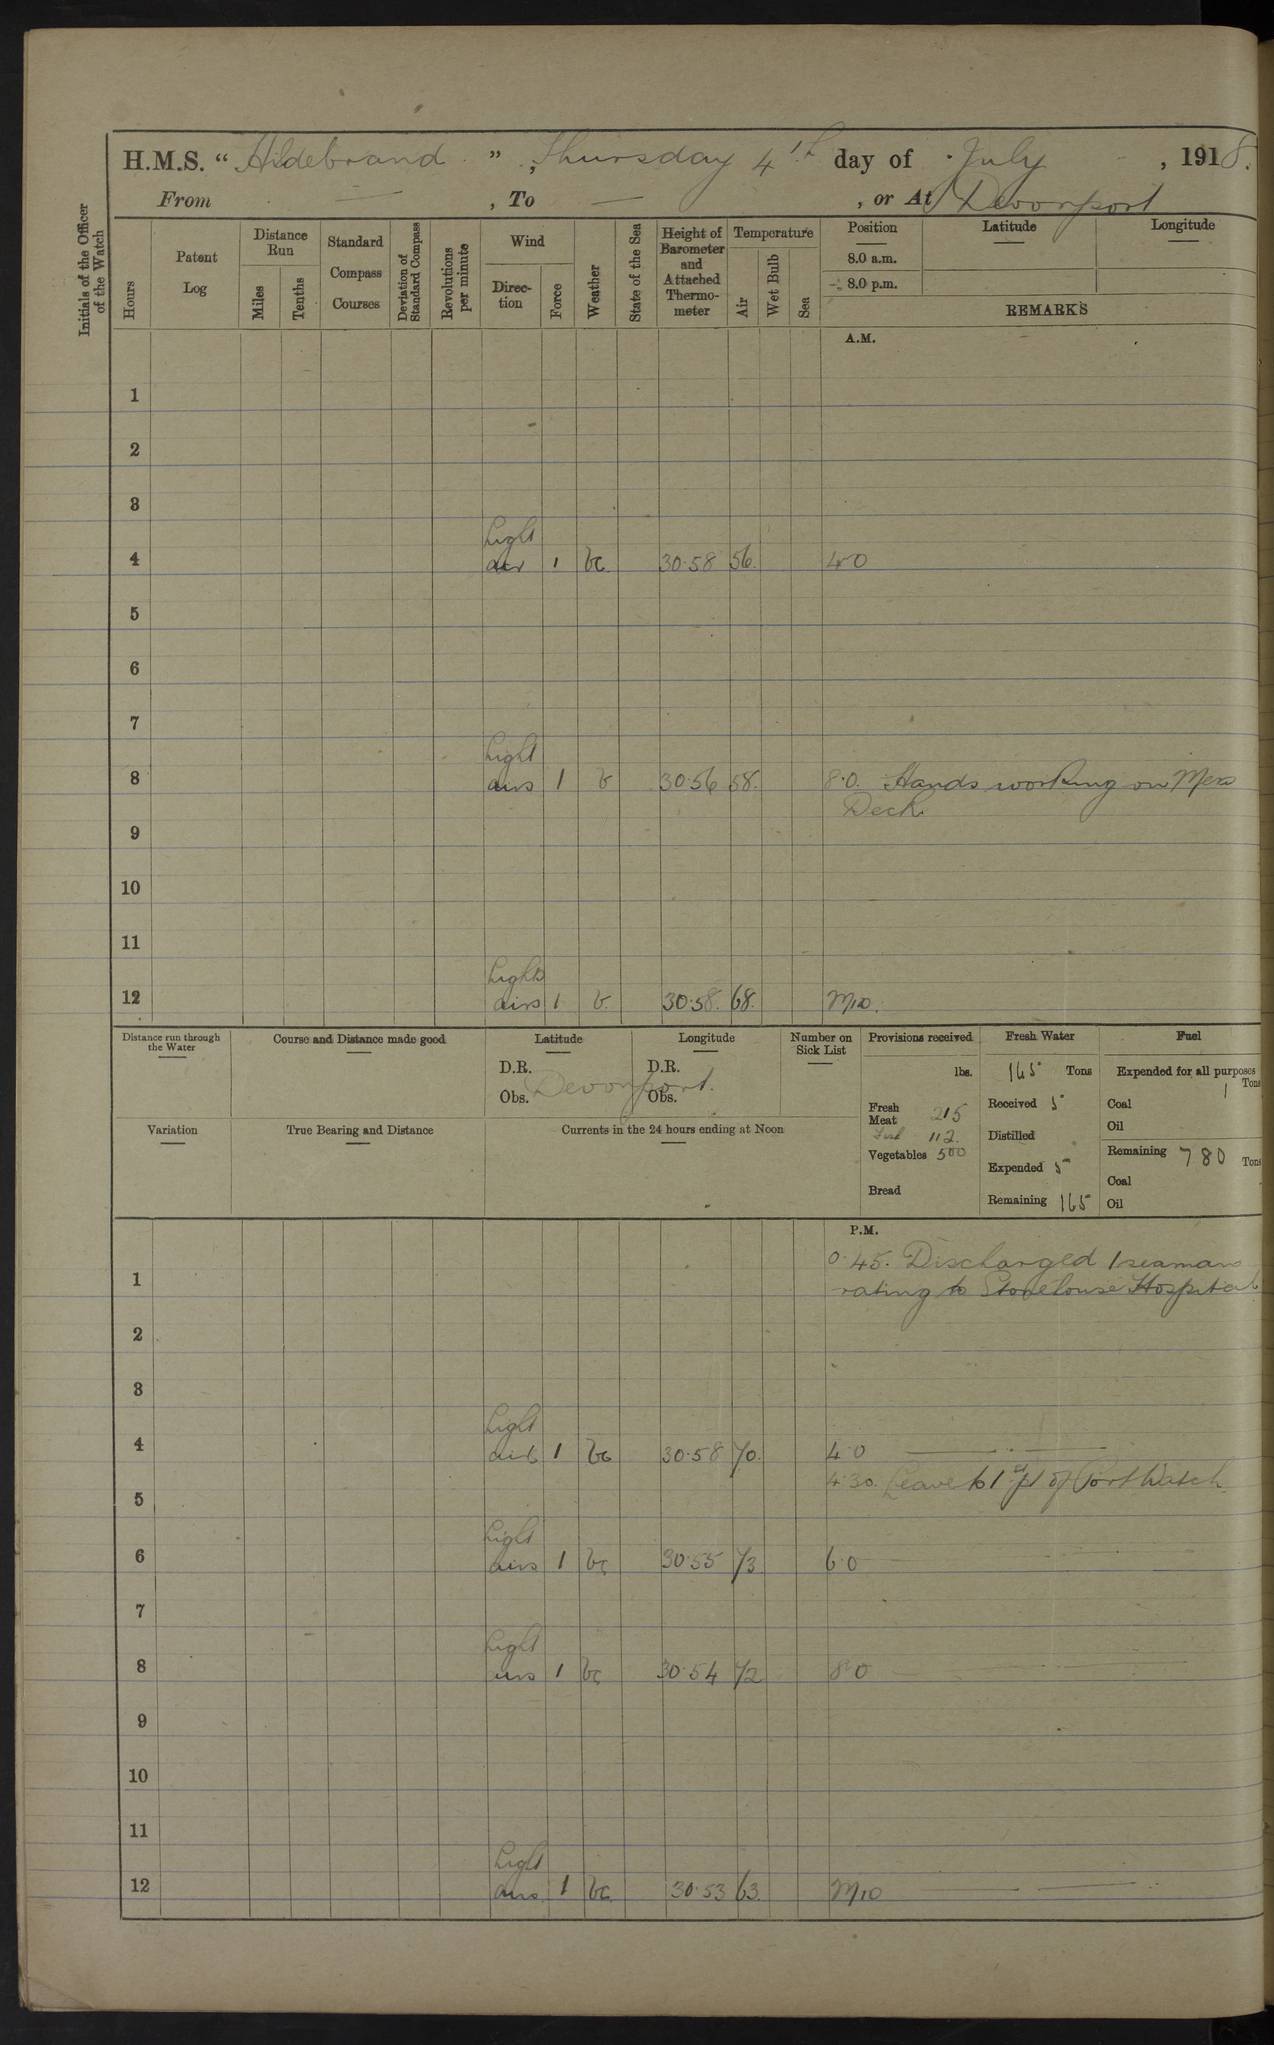 H.M.S. “ Hildebrand ”, Thursday 4th day of July, 1918.
From — , To — , or At Devonport
Initials of the Officer of the Watch
Hours
Patent Log
Distance Run
Miles
Tenths
Standard Compass Courses
Deviation of Standard Compass
Revolutions per minute
Wind
Direction
Force
Weather
State of the Sea
Height of Barometer and Attached Thermometer
Temperature
Air
Wet Bulb
Sea
Position Latitude Longitude
8.0 a.m.
8.0 p.m.
REMARKS
A.M.
1
2
3
Light
4 air 1 bc 30.58 56. 4.0
5
6
7
Light
8 airs 1 b 30.56 58. 8.0. Hands working on Mess
Deck
9
10
11
Light
12 airs 1 b. 30.58. 68. Mid.
Distance run through the Water
Course and Distance made good
Latitude Longitude
D.R. D.R.
Obs. Devonport. Obs.
Number on Sick List
Variation
True Bearing and Distance
Currents in the 24 hours ending at Noon
Provisions received
lbs.
Fresh Meat 215
Fish 112.
Vegetables 500
Bread
Fresh Water
165 Tons
Received 5
Distilled
Expended 5
Remaining 165
Fuel
Expended for all purposes
1 Tons
Coal
Oil
Remaining 780 Tons
Coal
Oil
P.M.
0.45. Discharged 1 seaman
1 rating to Stonehouse Hospital
2
3
Light
4 airs 1 bc 30.58 70. 4.0
4.30. Leave to 1st pt of Port Watch
5
Light
6 airs 1 bc 30.55 73 6.0
7
Light
8 airs 1 bc 30.54 72 8.0
9
10
11
Light
12 airs 1 bc 30.53 63. Mid